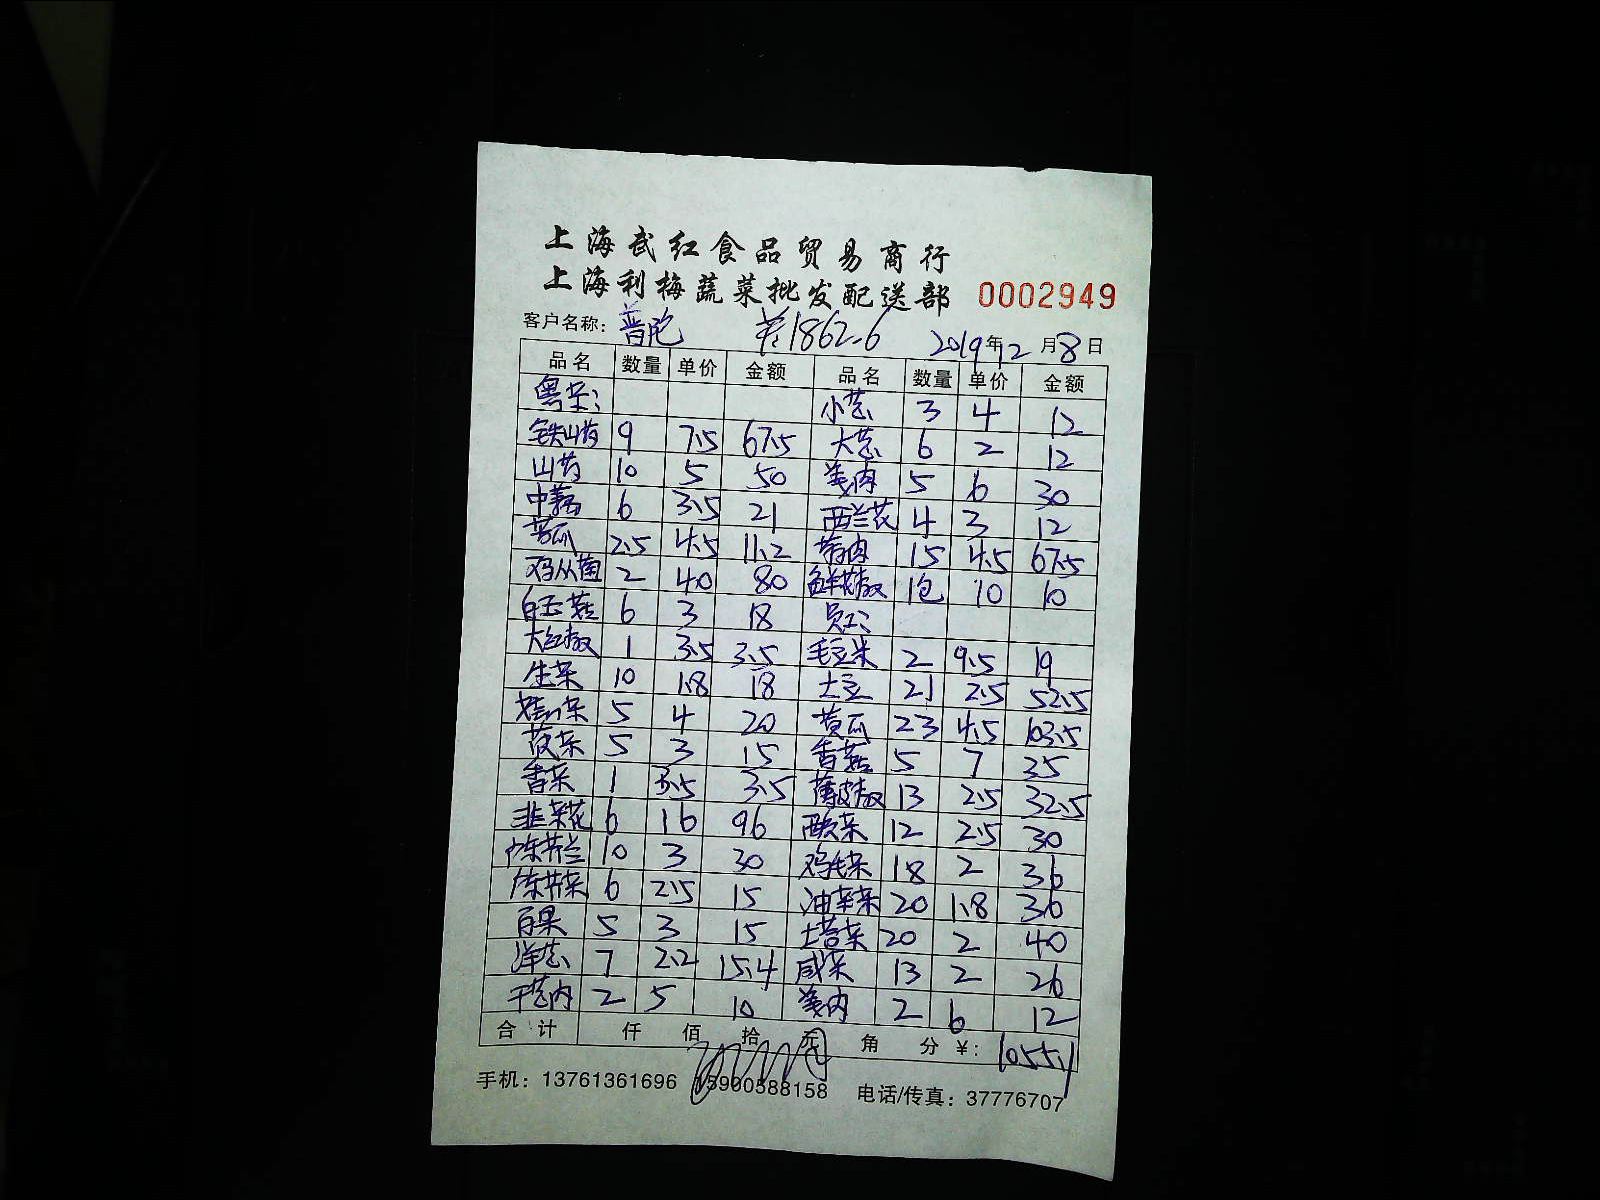 上海武红食品贸易商行
上海利梅蔬菜批发配送部 0002949
客户名称: 普陀 1862.6 2019年12月8日
品名 数量 单价 金额 品名 数量 单价 金额
粤菜: 小葱 3 4 12
铁山药 9 7.5 67.5 大葱 6 2 12
山药 10 5 50 姜肉 5 6 30
中藕 6 3.5 21 西兰花 4 3 12
苦瓜 2.5 4.5 11.2 蒜肉 15 4.5 67.5
鸡从菌 2 40 80 鲜花椒 1包 10 10
白玉菇 6 3 18 员工:
大红椒 1 3.5 3.5 毛豆米 2 9.5 19
生菜 10 1.8 18 土豆 21 2.5 52.5
5 4 20 黄瓜 23 4.5 103.5
菠菜 5 3 15 香菇 5 7 35
香菜 1 3.5 3.5 薄皮椒 13 2.5 32.5
韭菜花 6 16 96 12 2.5 30
芥兰 10 3 30 鸡毛菜 18 2 36
芥菜 6 2.5 15 油菜 20 1.8 36
百果 5 3 15 土菜 20 2 40
洋葱 7 2.2 15.4 咸菜 13 2 26
干葱肉 2 5 10 姜肉 2 6 12
合计 仟 佰 拾 元 角 分 ¥: 1055.1
手机: 13761361696 15900588158 电话/传真: 37776707